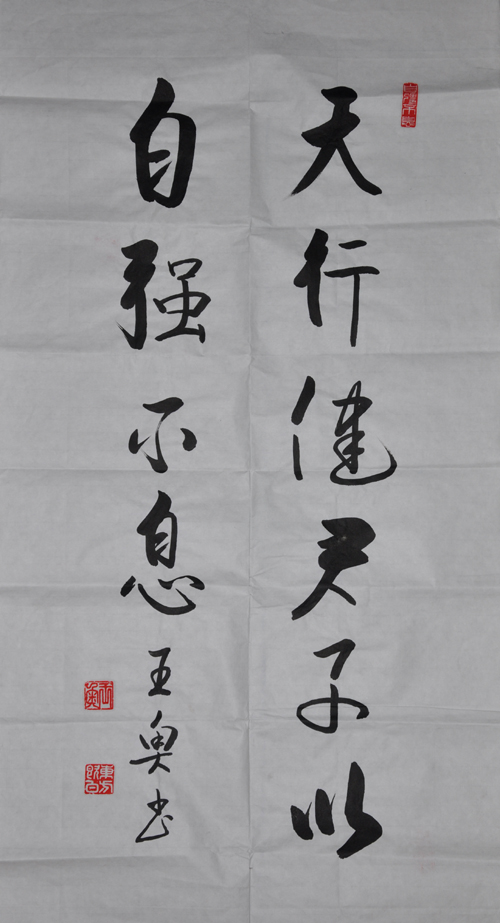 天行健君子以
自强不息王奥书